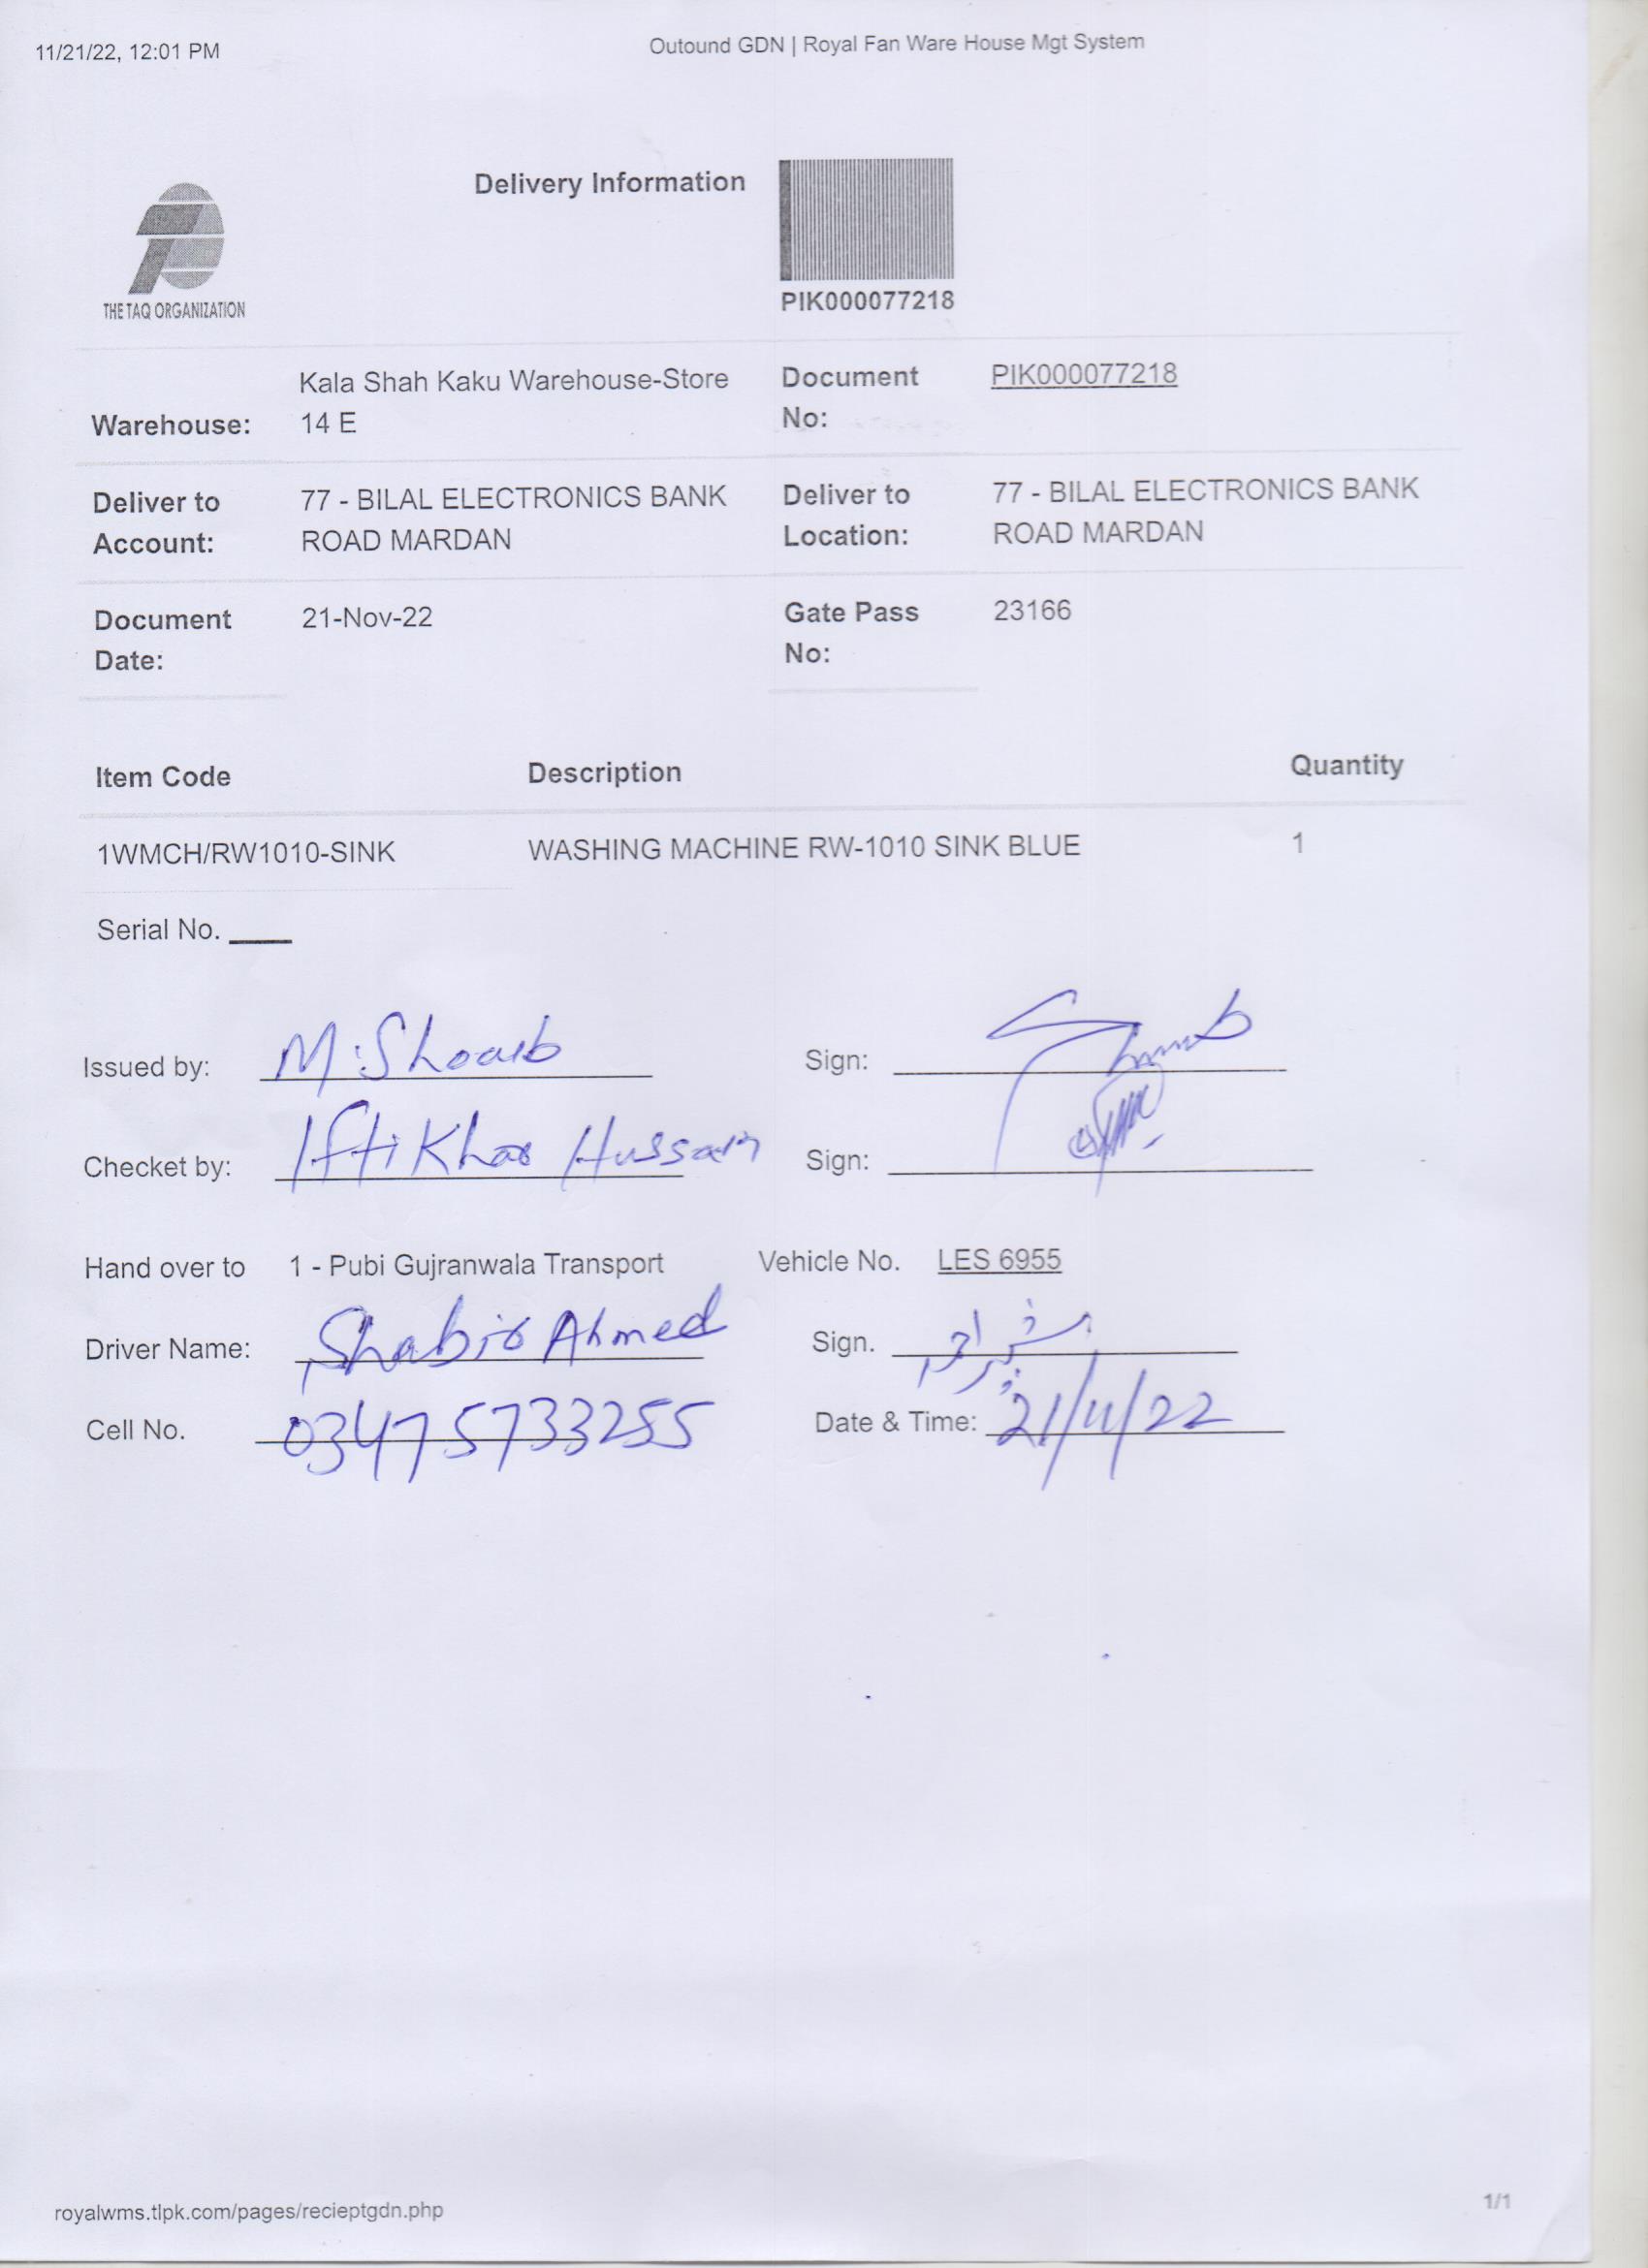 11/21/22, 12:01 PM Outound GDN | Royal Fan Ware House Mgt System
Delivery Information
THE TAQ ORGANIZATION
PIK000077218
Warehouse: Kala Shah Kaku Warehouse-Store 14 E Document No: PIK000077218
Deliver to Account: 77 - BILAL ELECTRONICS BANK ROAD MARDAN Deliver to Location: 77 - BILAL ELECTRONICS BANK ROAD MARDAN
Document Date: 21-Nov-22 Gate Pass No: 23166
Item Code Description Quantity
1WMCH/RW1010-SINK WASHING MACHINE RW-1010 SINK BLUE 1
Serial No. ____
Issued by: M.Shoaib Sign:
Checket by: Iftikhar Hussain Sign:
Hand over to 1 - Pubi Gujranwala Transport Vehicle No. LES 6955
Driver Name: Shabir Ahmed Sign. شبیر احمد
Cell No. 03475733255 Date & Time: 21/11/22
royalwms.tlpk.com/pages/recieptgdn.php 1/1